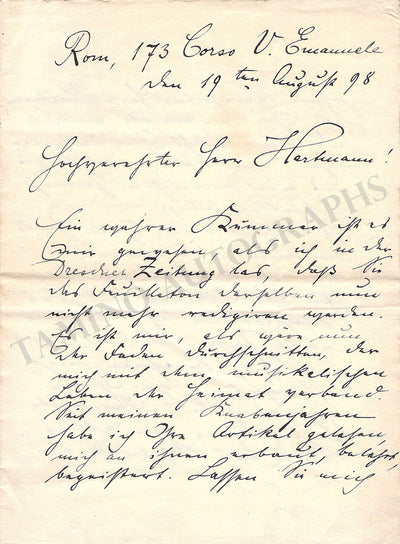 Rom, 173 Corso V. Emanuele
den 19ten August 98
Hochverehrter Herr Hartmann!
Ein wahrer Kummer ist es
mir gewesen als ich in der
Dresdner Zeitung las, daß Sie
das Feuilleton derselben nun
nicht mehr redigiren werden.
Es ist mir, als wäre nun
der Faden durchschnitten, der
mich mit dem musikalischen
Leben der Heimat verband.
Seit meinen Knabenjahren
habe ich Ihre Artikel gelesen,
mich an ihnen erbaut, belehrt,
begeistert. Lassen Sie mich
TAMINO AUTOGRAPHS